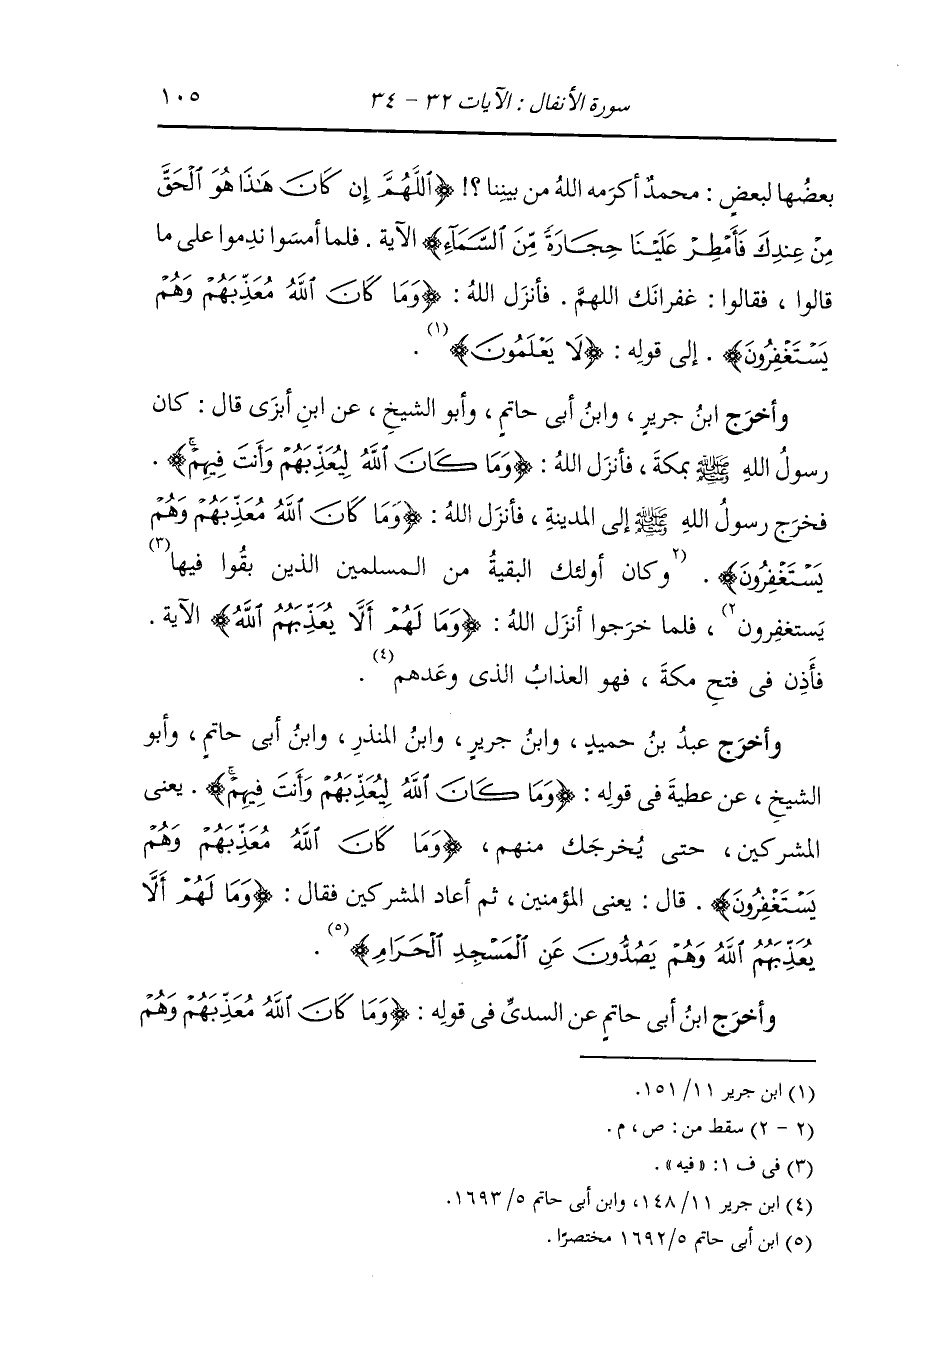 سورة الأنفال : الآيات ٣٢ - ٣٤ ١٠٥
بعضُها لبعضٍ : محمدٌ أكرَمه اللهُ من بينِنا ؟! ﴿ٱللَّهُمَّ إِن كَانَ هَٰذَا هُوَ ٱلْحَقَّ
مِنْ عِندِكَ فَأَمْطِرْ عَلَيْنَا حِجَارَةً مِّنَ ٱلسَّمَآءِ﴾ الآية . فلما أمسَوا ندِموا على ما
قالوا ، فقالوا : غفرانَك اللهمَّ . فأنزَل اللهُ : ﴿وَمَا كَانَ ٱللَّهُ مُعَذِّبَهُمْ وَهُمْ
يَسْتَغْفِرُونَ﴾ . إلى قولِه : ﴿لَا يَعْلَمُونَ﴾(١) .
وأخرَج ابنُ جريرٍ ، وابنُ أبى حاتمٍ ، وأبو الشيخِ ، عن ابنِ أبزَى قال : كان
رسولُ اللهِ ﷺ بمكةَ ، فأنزَل اللهُ : ﴿وَمَا كَانَ ٱللَّهُ لِيُعَذِّبَهُمْ وَأَنتَ فِيهِمْۚ﴾ .
فخرَج رسولُ اللهِ ﷺ إلى المدينةِ ، فأنزَل اللهُ : ﴿وَمَا كَانَ ٱللَّهُ مُعَذِّبَهُمْ وَهُمْ
يَسْتَغْفِرُونَ﴾ . (٢وكان أولئك البقيةُ من المسلمين الذين بقُوا فيها(٣)
يَستغفِرون٢) ، فلما خرَجوا أنزَل اللهُ : ﴿وَمَا لَهُمْ أَلَّا يُعَذِّبَهُمُ ٱللَّهُ﴾ الآية .
فأَذِن فى فتحِ مكةَ ، فهو العذابُ الذى وعَدهم(٤) .
وأخرَج عبدُ بنُ حميدٍ ، وابنُ جريرٍ ، وابنُ المنذرِ ، وابنُ أبى حاتمٍ ، وأبو
الشيخِ ، عن عطيةَ فى قولِه : ﴿وَمَا كَانَ ٱللَّهُ لِيُعَذِّبَهُمْ وَأَنتَ فِيهِمْۚ﴾ . يعنى
المشركين ، حتى يُخرجَك منهم ، ﴿وَمَا كَانَ ٱللَّهُ مُعَذِّبَهُمْ وَهُمْ
يَسْتَغْفِرُونَ﴾ . قال : يعنى المؤمنين ، ثم أعاد المشركين فقال : ﴿وَمَا لَهُمْ أَلَّا
يُعَذِّبَهُمُ ٱللَّهُ وَهُمْ يَصُدُّونَ عَنِ ٱلْمَسْجِدِ ٱلْحَرَامِ﴾(٥) .
وأخرَج ابنُ أبى حاتمٍ عن السدىِّ فى قولِه : ﴿وَمَا كَانَ ٱللَّهُ مُعَذِّبَهُمْ وَهُمْ
(١) ابن جرير ١١/ ١٥١.
(٢ - ٢) سقط من : ص ، م .
(٣) فى ف ١ : « فيه » .
(٤) ابن جرير ١١/ ١٤٨، وابن أبى حاتم ٥/ ١٦٩٣.
(٥) ابن أبى حاتم ٥/ ١٦٩٢ مختصرًا .